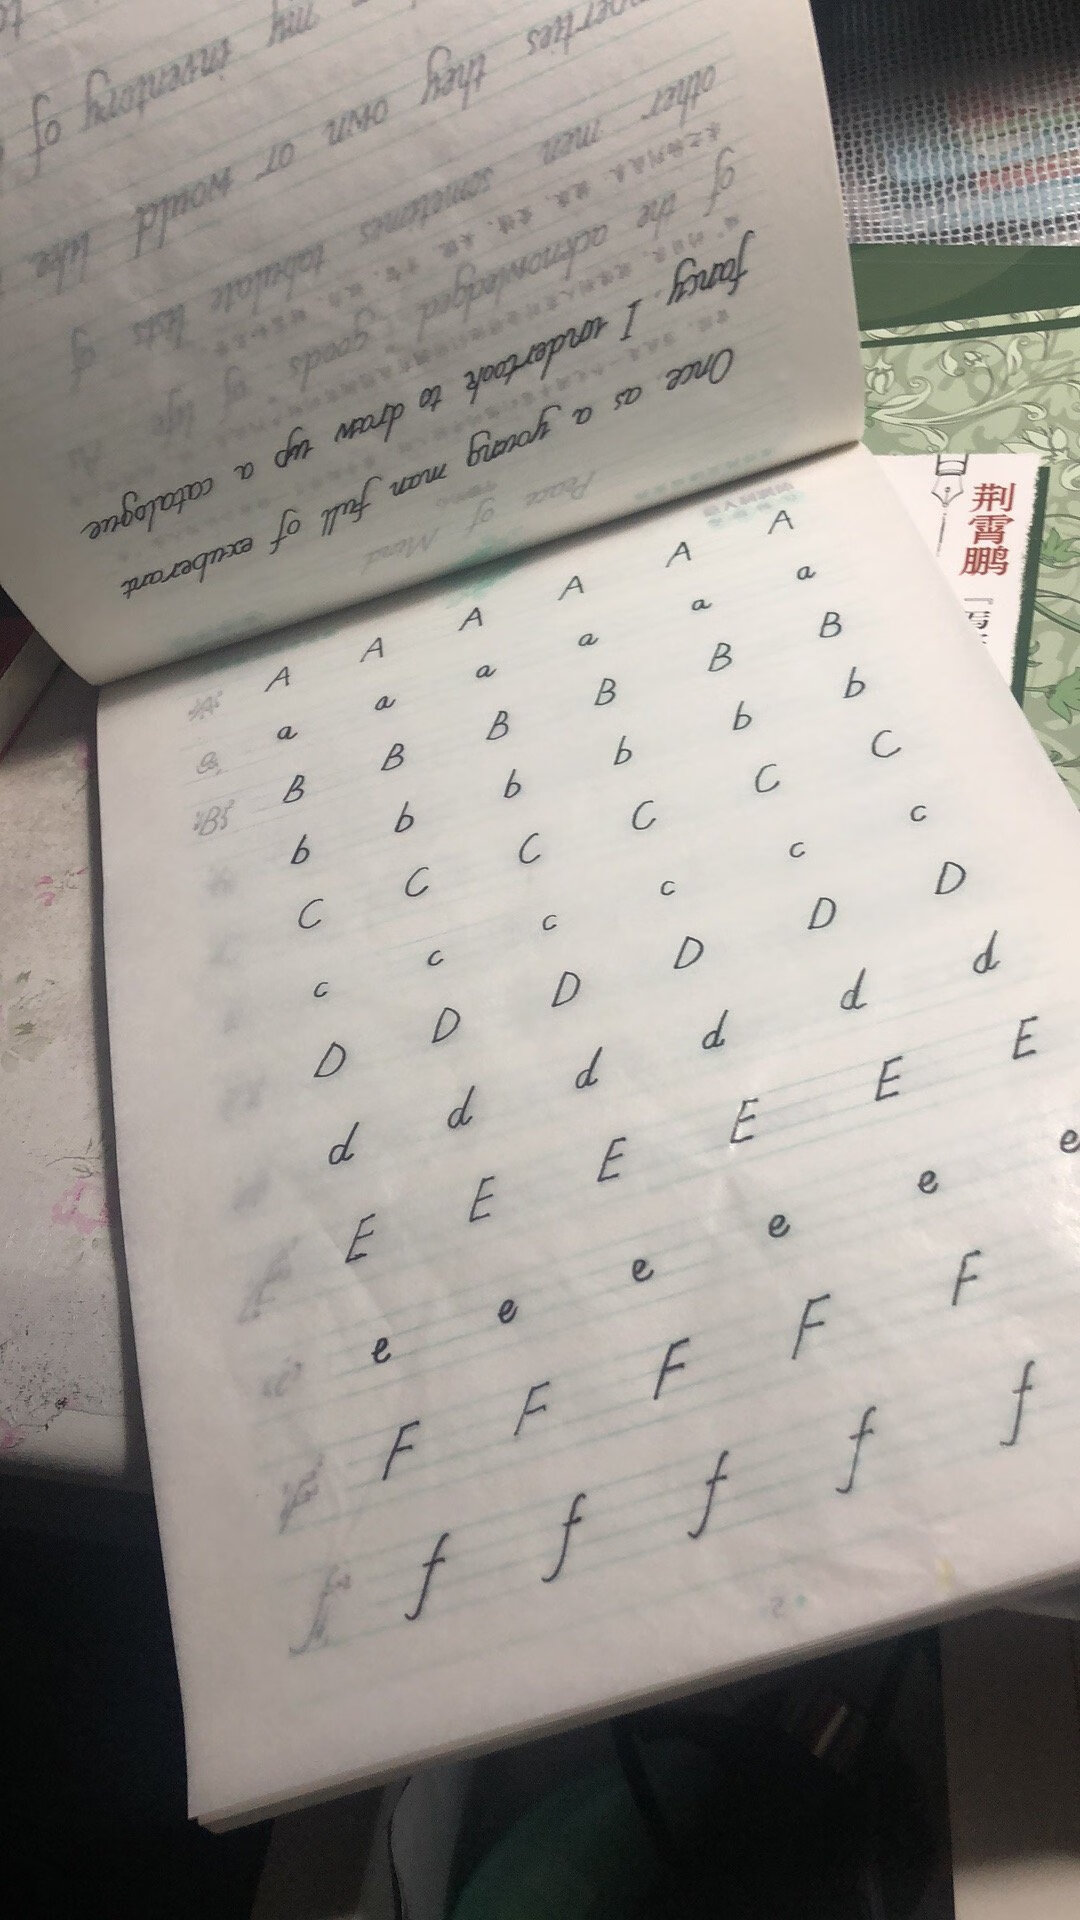 Once as a young man full of exuberant
fancy. I undertook to draw up a catalogue
of the acknowledged goods of life
other men sometimes tabulate lists of
properties they own or would like
my inventory of
Peace of Mind
A A A A A A
a a a a a a
B B B B B B
b b b b b b
C C C C C C
c c c c c c
D D D D D D
d d d d d d
E E E E E E
e e e e e e
F F F F F
f f f f f
荆霄鹏